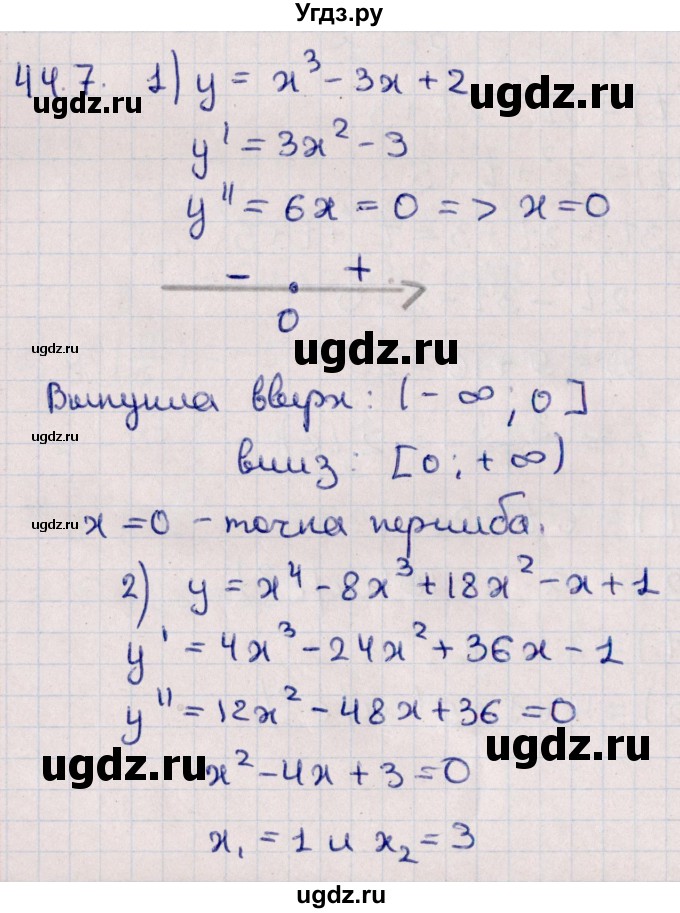 Угдз.ру
44.7. 1) y = x³ - 3x + 2
ugdz.ru ugdz.ru
y' = 3x² - 3
y'' = 6x = 0 => x = 0
- +
0
ugdz.ru ugdz.ru
Выпукла вверх: (-∞; 0]
ugdz.ru
вниз: [0; +∞)
ugdz.ru x = 0 - точка перегиба.
2) y = x⁴ - 8x³ + 18x² - x + 1
y' = 4x³ - 24x² + 36x - 1
y'' = 12x² - 48x + 36 = 0
ugdz.ru ugdz.ru
x² - 4x + 3 = 0
x₁ = 1 и x₂ = 3
ugdz.ru